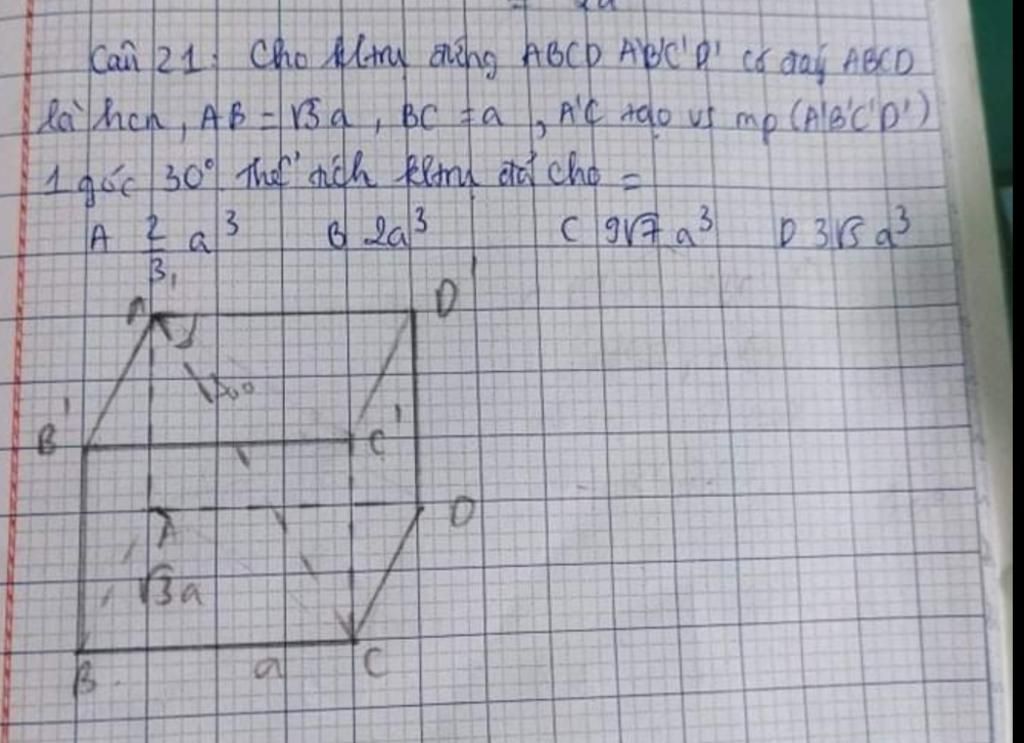 Câu 21: Cho kltrụ đứng ABCD A'B'C'D' có đáy ABCD
là hcn, AB = √3 a, BC = a, A'C tạo vs mp (A'B'C'D')
1 góc 30°. Thể tích kltrụ đã cho =
A 2/3 a³ B 2a³ C 9√7 a³ D 3√5 a³
A' D'
30°
B' C'
A D
√3a
B a C